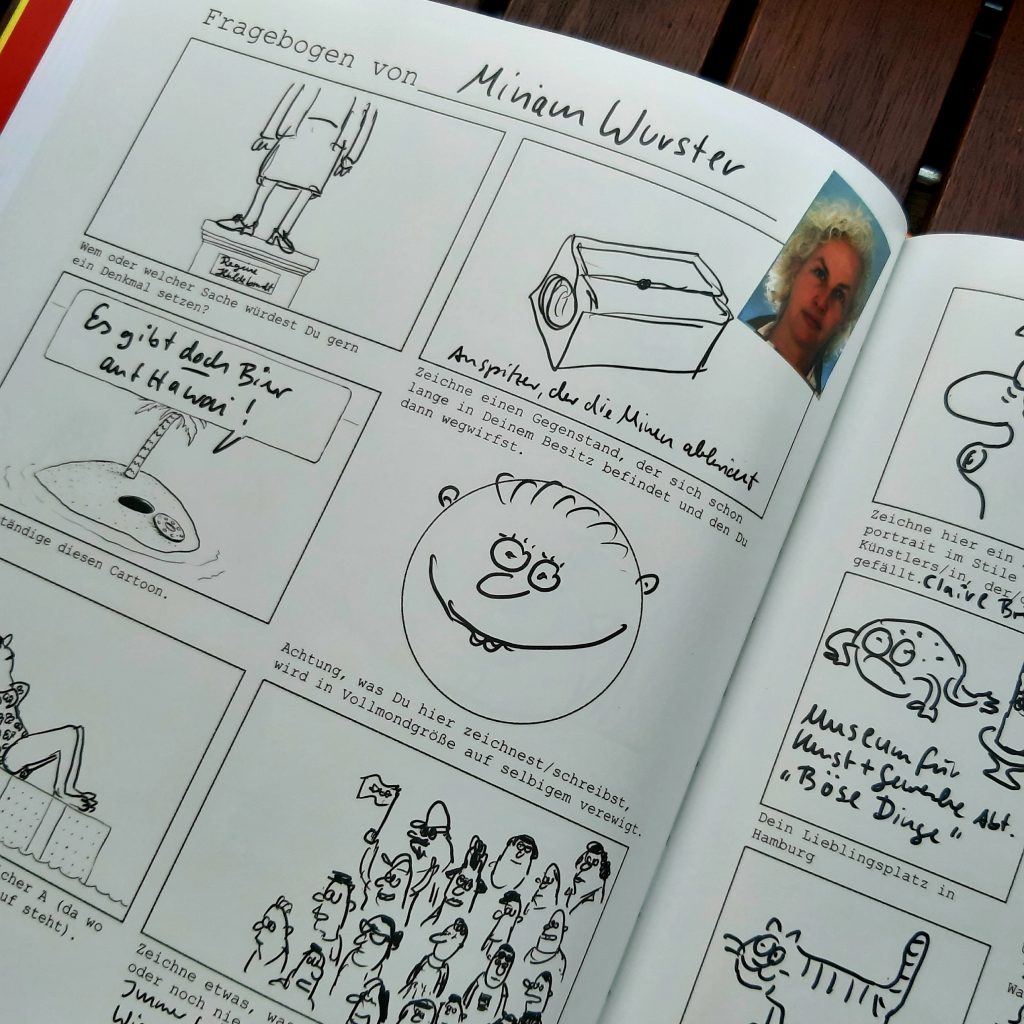 Fragebogen von Miriam Wurster
Regine
Hildebrandt
Wem oder welcher Sache würdest Du gern
ein Denkmal setzen?
Anspitzer, der die Minen abbricht
Zeichne einen Gegenstand, der sich schon
lange in Deinem Besitz befindet und den Du
dann wegwirfst.
Es gibt doch Bier
auf Hawai!
ständige diesen Cartoon.
Achtung, was Du hier zeichnest/schreibst,
wird in Vollmondgröße auf selbigem verewigt.
cher A (da wo
uf steht).
Zeichne etwas, was
oder noch nie
Immer
Zeichne hier ein
portrait im Stile
Künstlers/in, der/
gefällt. Claire Br
Museum für
Kunst + Gewerbe Abt.
"Böse Dinge"
Dein Lieblingsplatz in
Hamburg
Wa